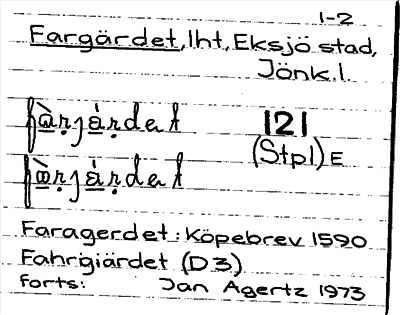 1-2
Fargärdet, lht, Eksjö stad,
Jönk. l.
121
(Stpl) E
Faragerdet: Köpebrev 1590
Fahrgiärdet (D3)
forts: Jan Agertz 1973